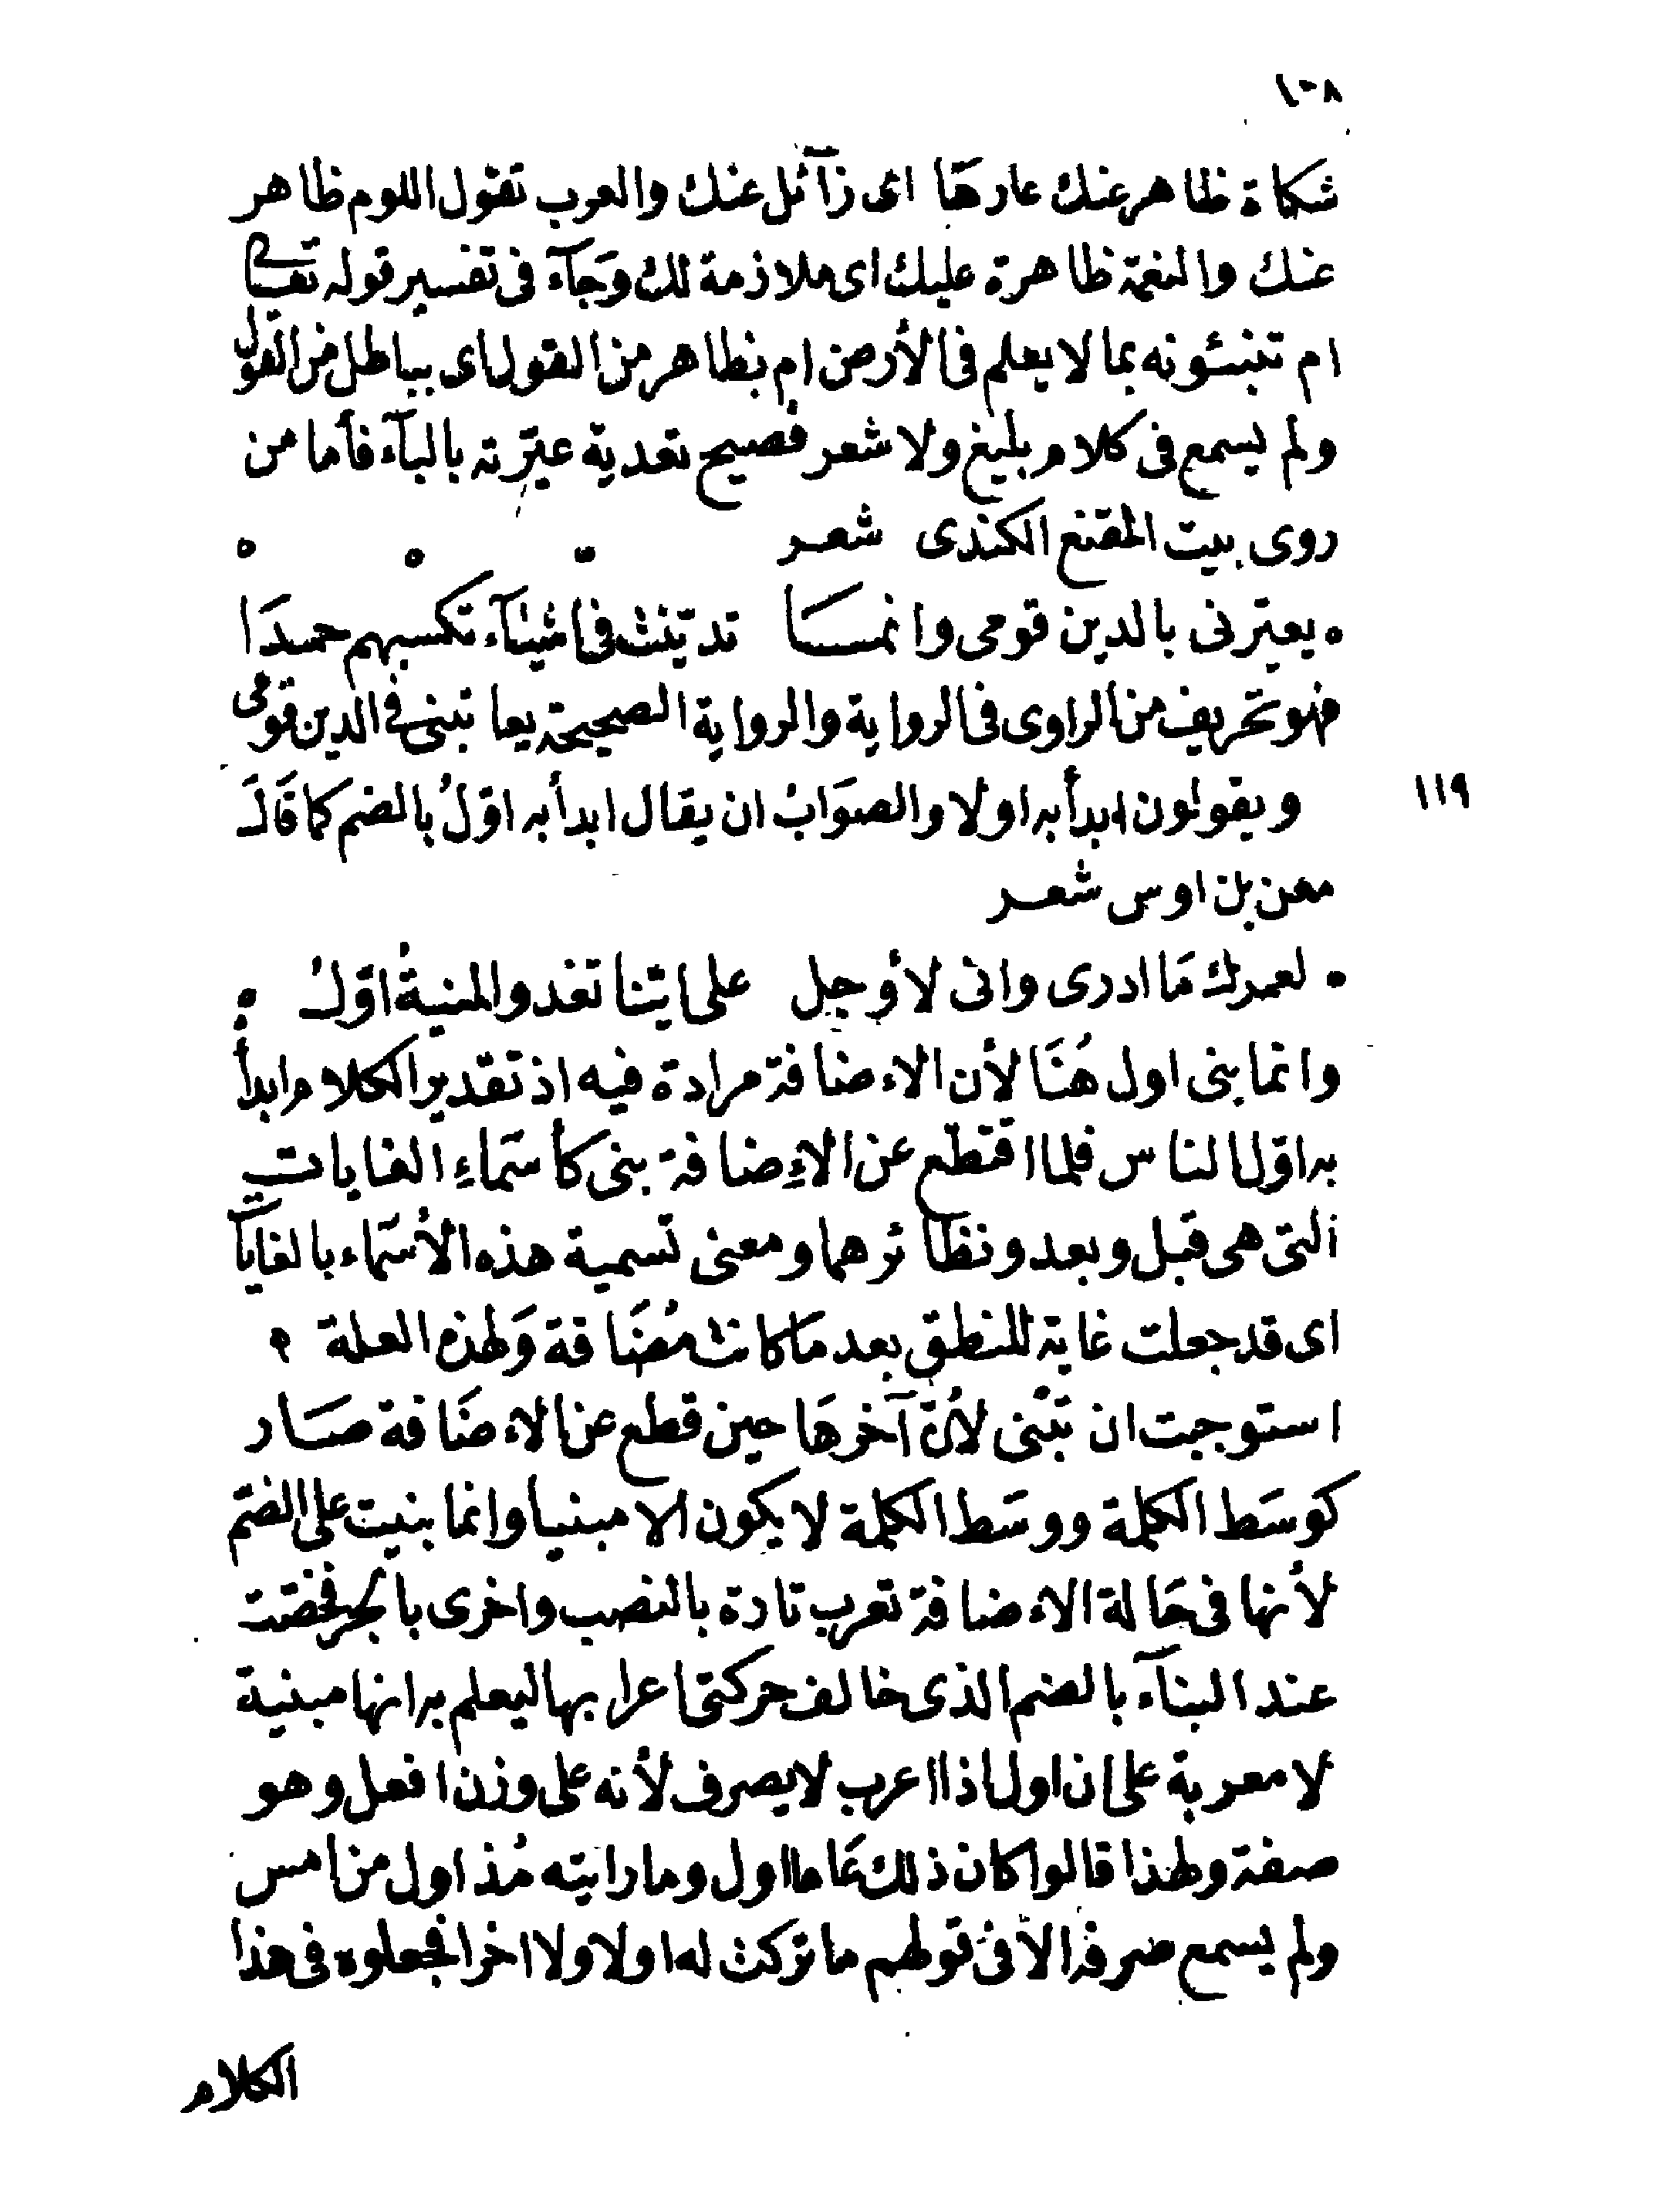 ١٠٨
شكاة ظاهر عنك عارهَا اى زآئل عنك والعرب تقول اللوم ظاهر
عنك والنعمة ظاهرة عليك اى ملازمة لك وَجَآء فى تفسير قوله تعالى
ام تنبئونه بما لا يعلم فى الأرض ام بظاهر من القول اى بباطل من القول
ولم يسمع فى كلام بليغ ولا شعر فصيح تعدية عيّرته بالبآء فأما من
روى بيت المقنع الكندى شعر
يعيّرنى بالدين قومى وانمسَا تديّنت فى اشيآء تكسبهم حمدَا
فهو تحريف من الراوى فى الرواية والرواية الصحيحة يعاتبنى فى الدين قومى
١١٩ ويقولون ابدأ به اولا والصوَابُ ان يقال ابدأ به اوّلُ بالضم كما قَالَ
معن بن اوس شعر
لعمرك مَا ادرى وانى لأوجل على ايّنا تغدو المنيةُ اوّلُ
وانما بنى اول هُنَا لأن الاءضافة مرادة فيه اذ تقدير الكلام ابدأ
به اوّل الناس فلما اقتطع عن الإضافة بنى كأسَماءِ الغايات
التى هى قبل وبعد ونظائرهما ومعنى تسمية هذه الأسَماء بالغايات
اى قد جعلت غاية للنطق بعد مَا كانت مُضَافة وَلهذه العلة
استوجبت ان تبْنى لأنّ آخرهَا حين قطع عن الاءضَافة صَار
كوسَط الكلمة ووسَط الكلمة لا يكون الا مبنيا وانما بنيت على الضم
لأنها فى حَالة الاءضافة تعرب تارة بالنصب واخرى بالجر فخصّت
عند البنآء بالضم الذى خالف حركتى اعرابها ليعلم به انها مبنية
لا معربة على ان اول اذا اعرب لا يصرف لأنه على وزن افعل وهو
صفة ولهذا قالوا كان ذلك عَاما اول وما رايته مُذ اول من امس
ولم يسمع صرفه الا فى قولهم ما تركت له اولا ولا اخرا فجعلوه فى هذا
الكلام